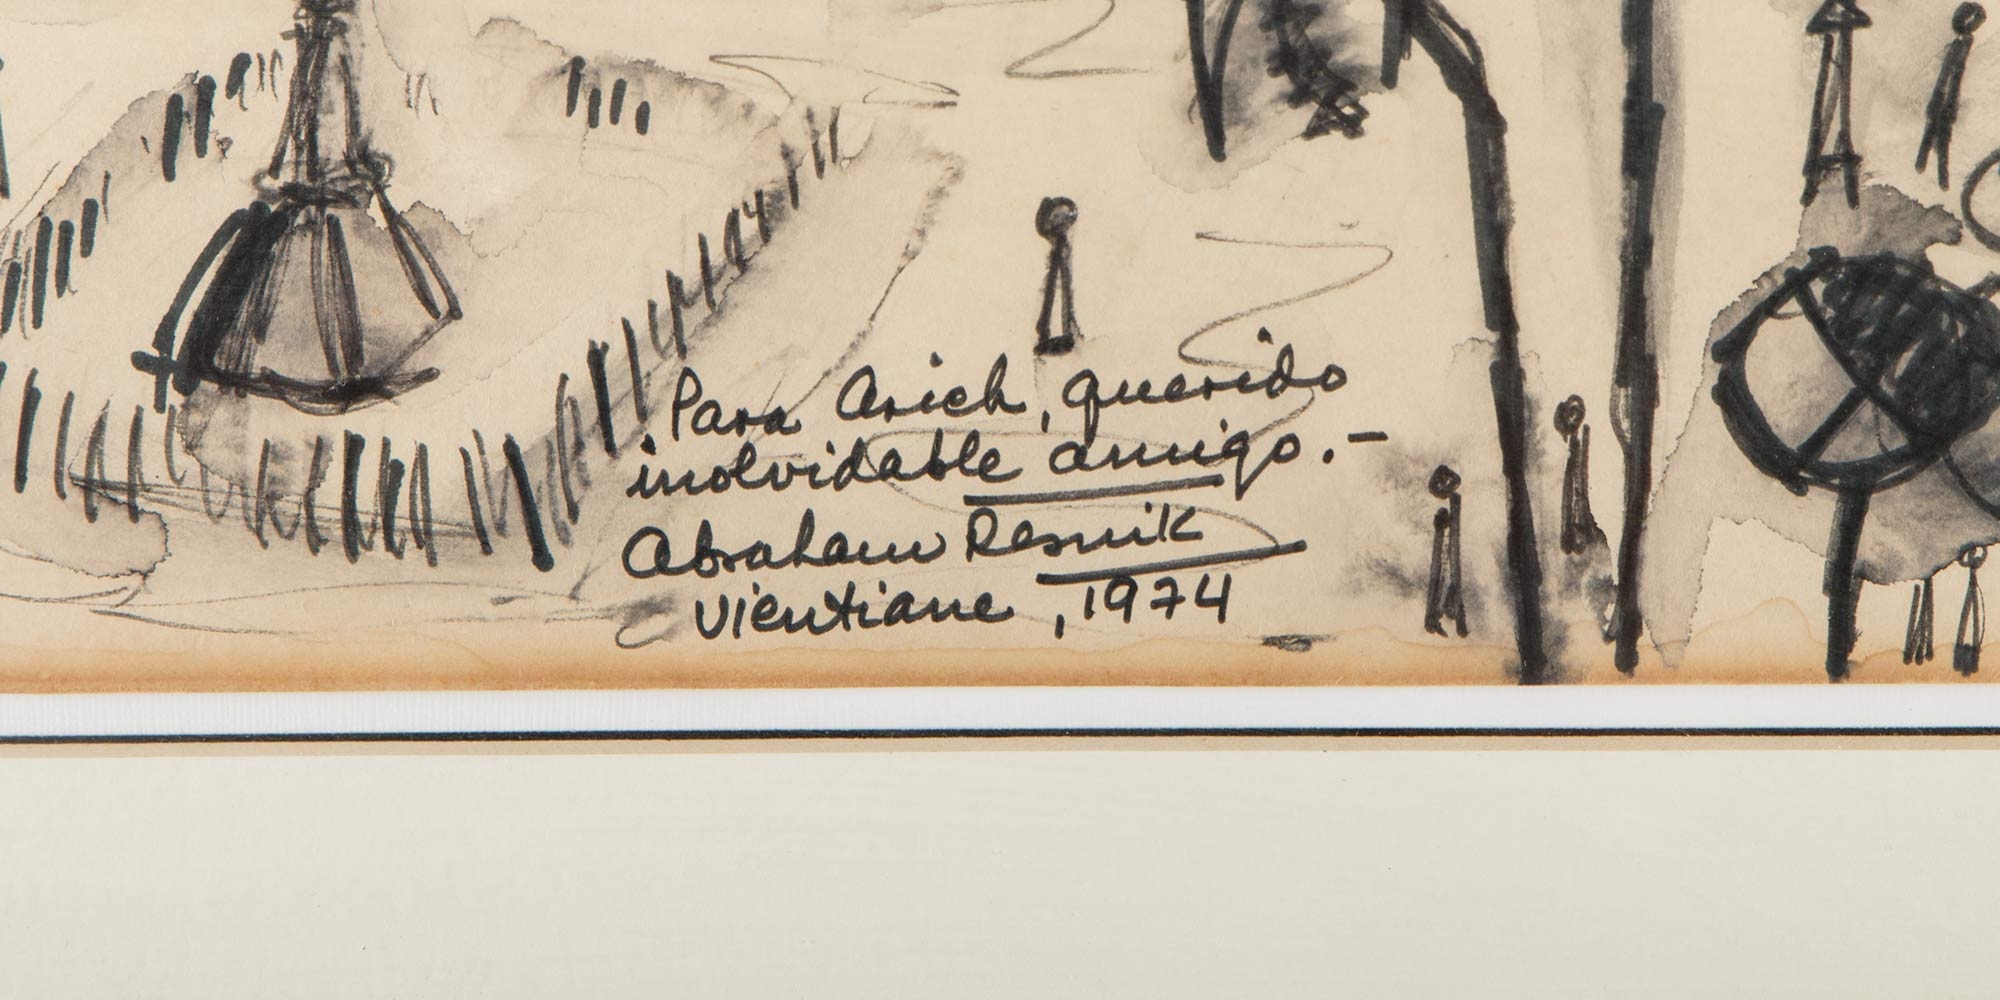 Para Arieh, querido
inolvidable amigo.-
Abraham Resnik
Vientiane, 1974